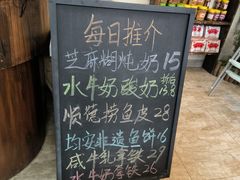 每日推介
芝麻糊炖奶 15
水牛奶酸奶
顺德捞鱼皮 28
均安非遗鱼饼 16
咸牛乳拿铁 29
水牛奶拿铁 26